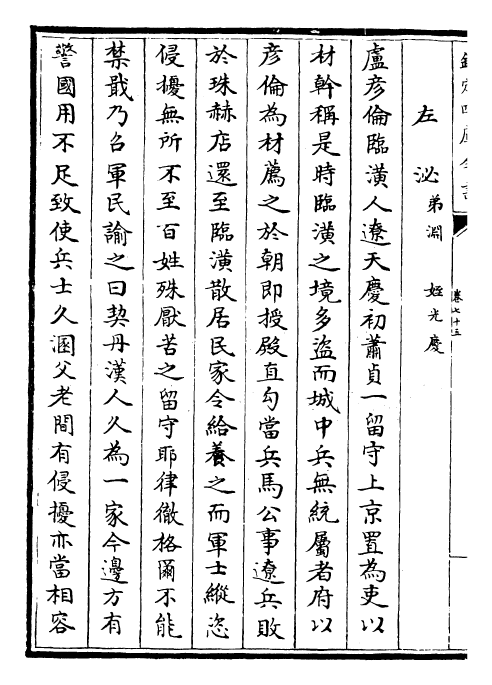 欽定四庫全書
卷七十五
左泌 弟淵 姪光慶
盧彦倫臨潢人遼天慶初蕭貞一留守上京置為吏以
材幹稱是時臨潢之境多盗而城中兵無統屬者府以
彦倫為材薦之於朝即授殿直勾當兵馬公事遼兵敗
於珠赫店還至臨潢散居民家令給養之而軍士縱恣
侵擾無所不至百姓殊厭苦之留守耶律徹格爾不能
禁戢乃召軍民諭之曰契丹漢人久為一家今邊方有
警國用不足致使兵士久溷父老間有侵擾亦當相容